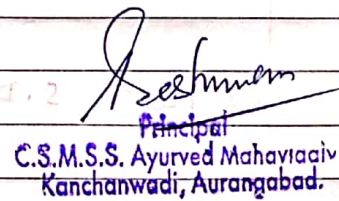 Principal
C.S.M.S.S. Ayurved Mahavidaiv
Kanchanwadi, Aurangabad.